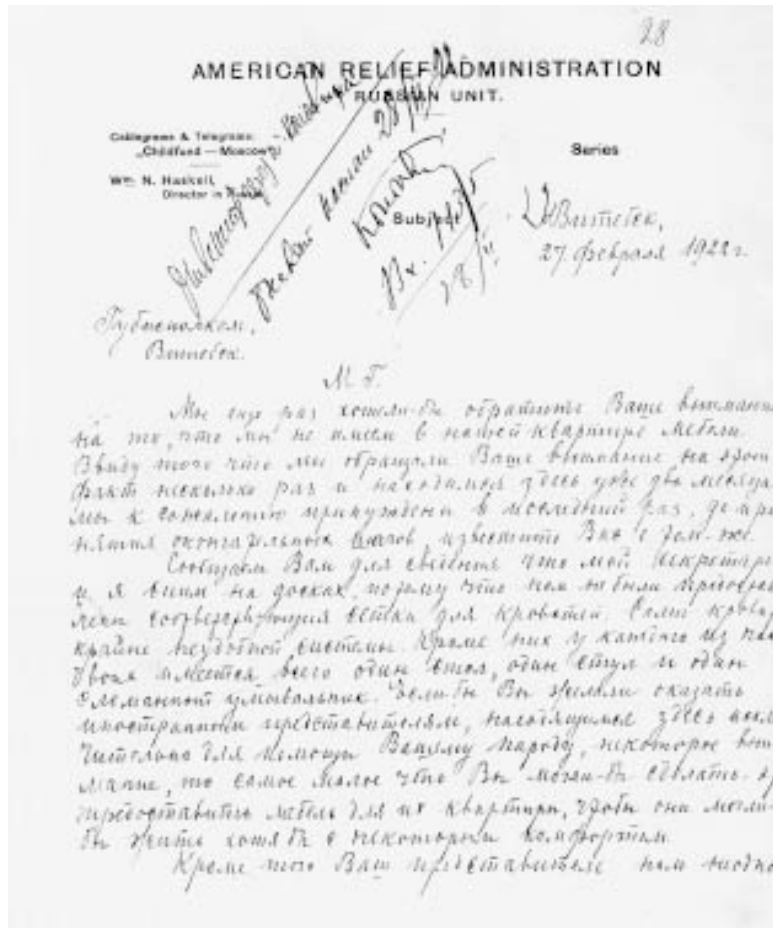 28
AMERICAN RELIEF ADMINISTRATION
RUSSIAN UNIT.
Cablegrams & Telegrams:
„Childfund — Moscow“
Series
Wm. N. Haskell,
Director in Russia
Subject
28/II
Витебск,
27 февраля 1922 г.
Губисполком,
Витебск.
М. Г.
Мы еще раз хотели-бы обратить Ваше внимани
на то, что мы не имеем в нашей квартире мебели.
Ввиду того что мы обращали Ваше внимание на этот
факт несколько раз и находимся здесь уже два месяца
мы к сожалению принуждены в последний раз, до при
нятия окончательных шагов, известить Вас о том-же.
Сообщаем Вам для сведения что мой секретарь
и я спим на досках, потому что нам не были предостав
лены соответствующия сетки для кроватей. Сами крова
крайне неудобной системы. Кроме них у каждого из нас
двоих имеется всего один стол, один стул и один
сломанный умывальник. Если бы Вы желали оказать
иностранным представителям, находящимся здесь искл
чительно для помощи Вашему народу, некоторое вни
мание, то самое малое что Вы могли-бы сделать
предоставить мебель для их квартиры, чтобы они могли
бы жить хотя бы с некоторым комфортом.
Кроме того Ваш представитель нам неодно